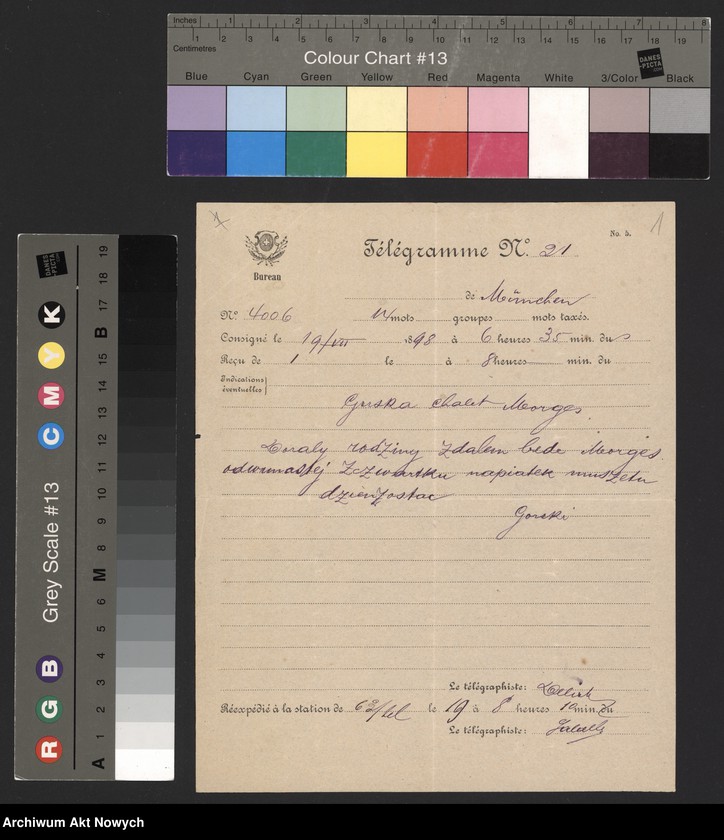 Inches 1 2 3 4 5 6 7 8
Centimetres 1 2 3 4 5 6 7 8 9 10 11 12 13 14 15 16 17 18 19
Colour Chart #13
DANES-PICTA.com
Blue Cyan Green Yellow Red Magenta White 3/Color Black
DANES-PICTA.com
R G B Grey Scale #13 C M Y K
A 1 2 3 4 5 6 M 8 9 10 11 12 13 14 15 B 17 18 19
No. 5. 1
Bureau
Télégramme No. 21
de München
No 4006 mots groupes mots taxés.
Consigné le 19/VII 1898 à 6 heures 35 min. du s
Reçu de 1 le à 8 heures min. du
Indications
éventuelles
Gorska chalet Morges
rodziny zdalem bede Morges
odwunastej zczwartku napiatek muszetu
dzienzostac
Gorski
Le télégraphiste:
Réexpédié à la station de le 19 à 8 heures 10 min. du
Le télégraphiste:
Archiwum Akt Nowych